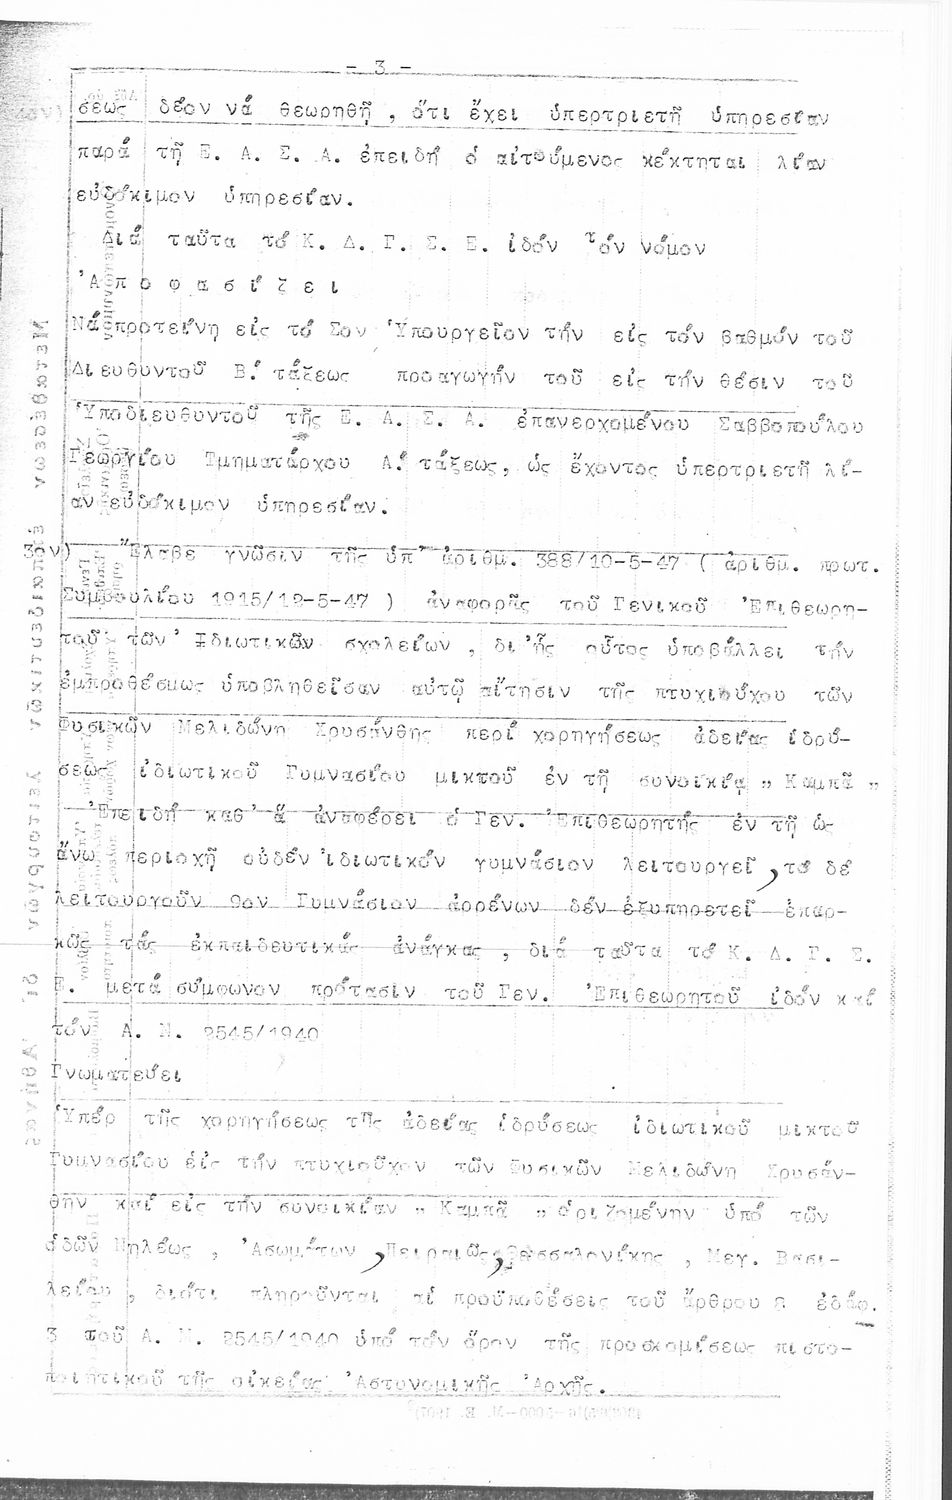 - 3 -
σεως δέον νά θεωρηθῇ , ὅτι ἔχει ὑπερτριετῆ ὑπηρεσίαν
παρά τῇ Ε. Α. Σ. Α. ἐπειδή ὁ αἰτούμενος κέκτηται λίαν
εὐδόκιμον ὑπηρεσίαν.
Διά ταῦτα τό Κ. Δ. Γ. Σ. Ε. ἰδόν τόν νόμον
Ἀ π ο φ α σ ί ζ ε ι
Νά προτείνη εἰς τό Σον Ὑπουργεῖον τήν εἰς τόν βαθμόν τοῦ
Διευθυντοῦ Β.΄ τάξεως προαγωγήν τοῦ εἰς τήν θέσιν τοῦ
Ὑποδιευθυντοῦ τῆς Ε. Α. Σ. Α. ἐπανερχομένου Σαββοπούλου
Γεωργίου Τμηματάρχου Α.΄ τάξεως, ὡς ἔχοντος ὑπερτριετῆ λί-
αν εὐδόκιμον ὑπηρεσίαν.
3ον) Ἔλαβε γνῶσιν τῆς ὑπ' ἀριθμ. 388/10-5-47 ( ἀριθμ. πρωτ.
Συμβουλίου 1915/12-5-47 ) ἀναφορᾶς τοῦ Γενικοῦ Ἐπιθεωρη-
τοῦ τῶν Ἰδιωτικῶν σχολείων , δι'ἧς οὗτος ὑποβάλλει τήν
ἐμπροθέσμως ὑποβληθεῖσαν αὐτῷ αἴτησιν τῆς πτυχιούχου τῶν
Φυσικῶν Μελιδώνη Χρυσάνθης περί χορηγήσεως ἀδείας ἱδρύ-
σεως ἰδιωτικοῦ Γυμνασίου μικτοῦ ἐν τῇ συνοικίᾳ " Καμπᾶ "
Ἐπειδή καθ' ἅ ἀναφέρει ὁ Γεν. Ἐπιθεωρητής ἐν τῇ ὡς
ἄνω περιοχῇ οὐδέν ἰδιωτικόν γυμνάσιον λειτουργεῖ , τό δέ
λειτουργοῦν 9ον Γυμνάσιον ἀρρένων δέν ἐξυπηρετεῖ ἐπαρ-
κῶς τάς ἐκπαιδευτικάς ἀνάγκας , διά ταῦτα τό Κ. Δ. Γ. Σ.
Ε. μετά σύμφωνον πρότασιν τοῦ Γεν. Ἐπιθεωρητοῦ ἰδόν καί
τόν Α. Ν. 2545/1940
Γνωματεύει
Ὑπέρ τῆς χορηγήσεως τῆς ἀδείας ἱδρύσεως ἰδιωτικοῦ μικτοῦ
Γυμνασίου εἰς τήν πτυχιοῦχον τῶν Φυσικῶν Μελιδώνη Χρυσάν-
θην καί εἰς τήν συνοικίαν " Καμπᾶ " ὁριζομένην ὑπό τῶν
ὁδῶν Νηλέως , Ἀσωμάτων , Πειραιῶς, Θεσσαλονίκης , Μεγ. Βασι-
λείου , διότι πληροῦνται αἱ προϋποθέσεις τοῦ ἄρθρου 2 ἐδάφ.
3 τοῦ Α. Ν. 2545/1940 ὑπό τόν ὅρον τῆς προσκομίσεως πιστο-
ποιητικοῦ τῆς οἰκείας Ἀστυνομικῆς Ἀρχῆς.